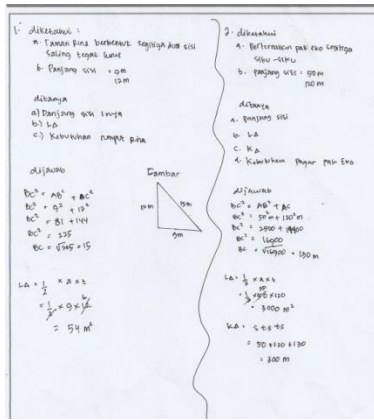 1. diketahui :
a. Taman Rina berbentuk segitiga dua sisi
saling tegak lurus
b. Panjang sisi = 9m
12m
ditanya
a) Panjang sisi lnya
b.) LΔ
c.) Kebutuhan rumput Rina
dijawab
BC² = AB² + AC²
BC² = 9² + 12²
BC² = 81 + 144
BC² = 225
BC = √225 = 15
Gambar
12m
15m
9m
LΔ = 1/2 × a × t
= 1/2 × 9 × 12 6
= 54 m²
2. diketahui
a. Perternakan pak eko segitiga
siku-siku
b. panjang sisi = 50m
120m
ditanya
a. panjang sisi
b. LΔ
c. KΔ
d. Kebutuhan pagar pak Eko
dijawab
BC² = AB² + AC
BC² = 50² m + 120² m
BC² = 2500 + 14400
BC² = 16900
BC = √16900 = 130 m
LΔ = 1/2 × a × t
= 1/2 × 50 × 120
= 3000 m²
KΔ = s + s + s
= 50 + 120 + 130
= 300 m